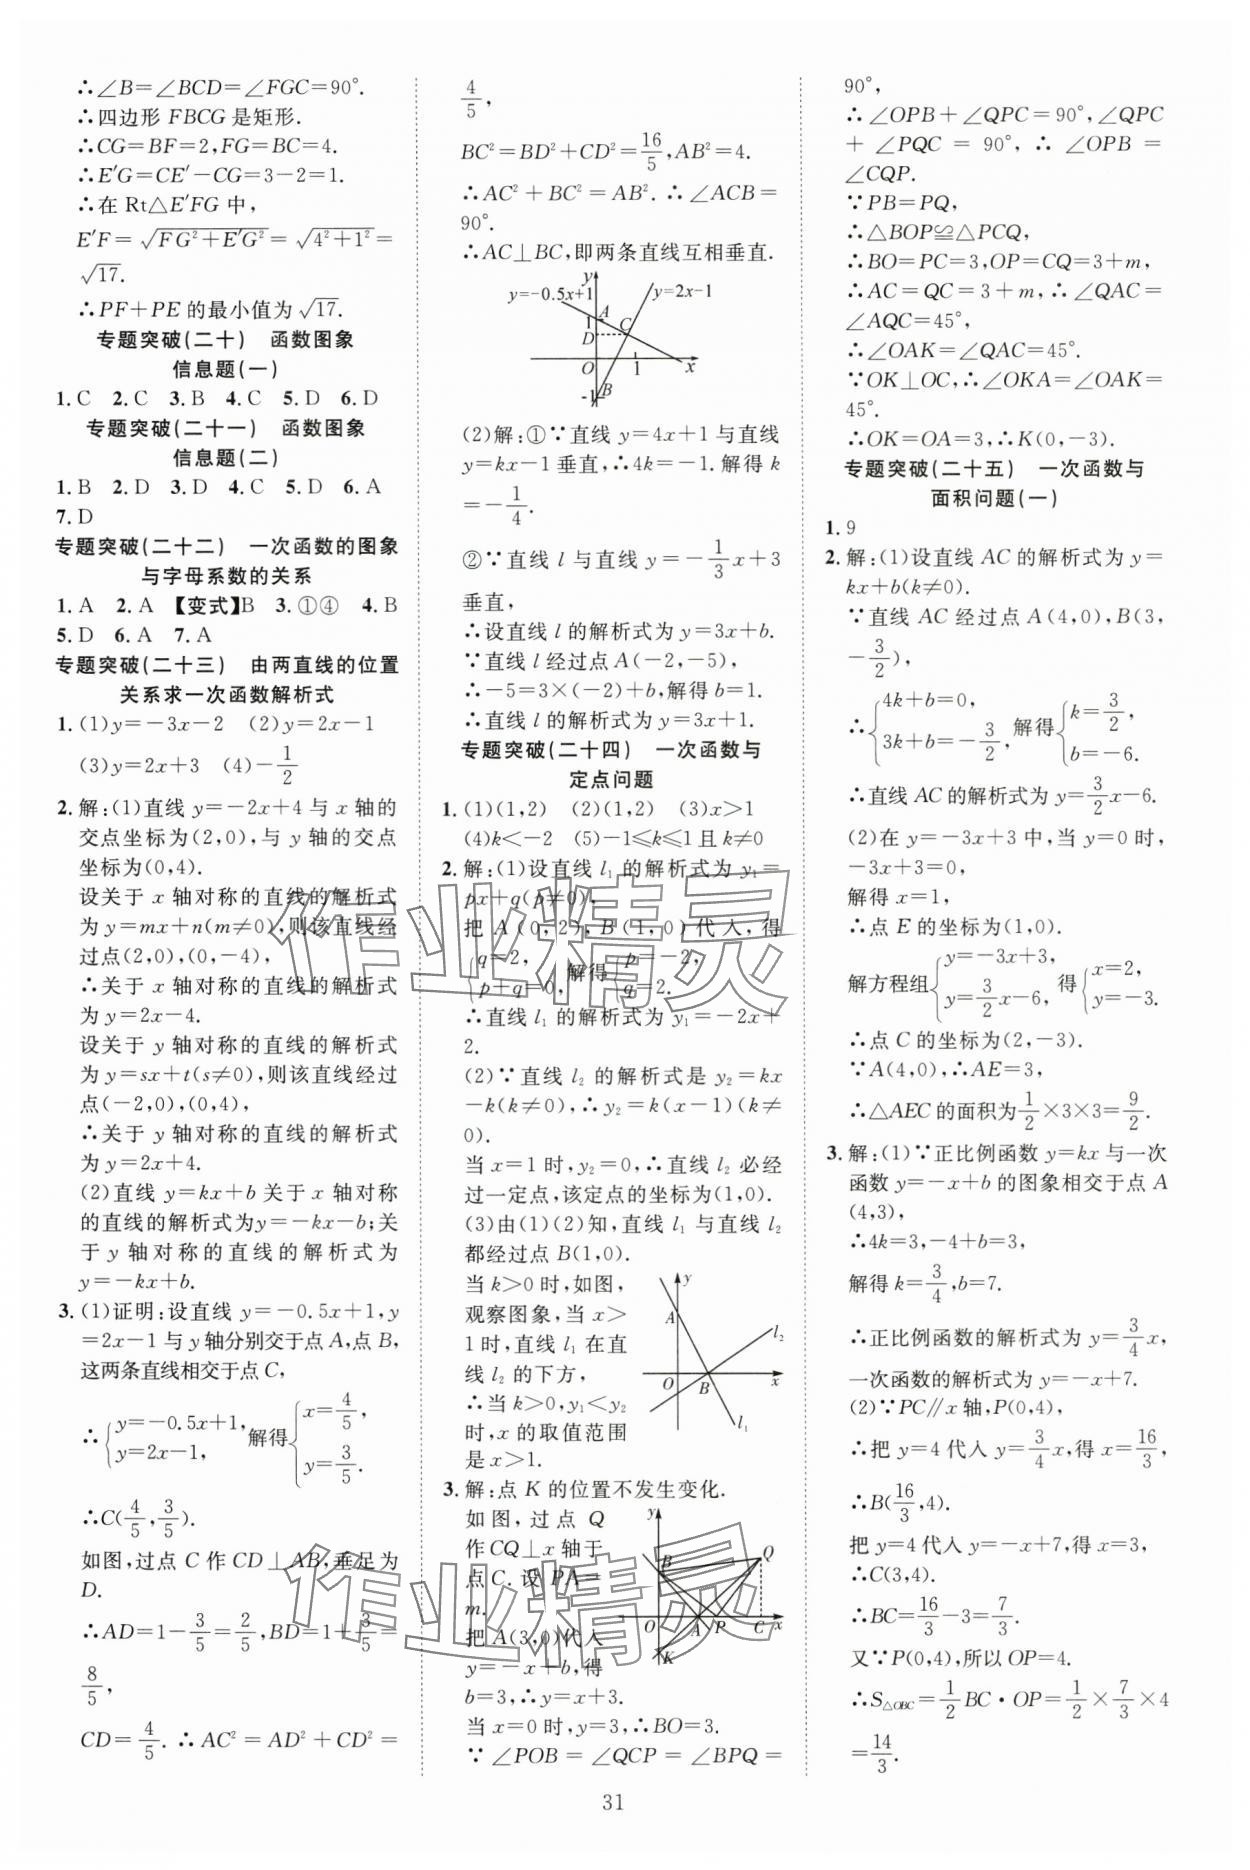 ∴∠B=∠BCD=∠FGC=90°.
∴四边形 FBCG 是矩形.
∴CG=BF=2,FG=BC=4.
∴E′G=CE′-CG=3-2=1.
∴在 Rt△E′FG 中,
E′F=√(FG²+E′G²)=√(4²+1²)=
√17.
∴PF+PE 的最小值为√17.
专题突破(二十) 函数图象
信息题(一)
1.C 2.C 3.B 4.C 5.D 6.D
专题突破(二十一) 函数图象
信息题(二)
1.B 2.D 3.D 4.C 5.D 6.A
7.D
专题突破(二十二) 一次函数的图象
与字母系数的关系
1.A 2.A 【变式】B 3.①④ 4.B
5.D 6.A 7.A
专题突破(二十三) 由两直线的位置
关系求一次函数解析式
1.(1)y=-3x-2 (2)y=2x-1
(3)y=2x+3 (4)-1/2
2.解:(1)直线 y=-2x+4 与 x 轴的
交点坐标为(2,0),与 y 轴的交点
坐标为(0,4).
设关于 x 轴对称的直线的解析式
为 y=mx+n(m≠0),则该直线经
过点(2,0),(0,-4),
∴关于 x 轴对称的直线的解析式
为 y=2x-4.
设关于 y 轴对称的直线的解析式
为 y=sx+t(s≠0),则该直线经过
点(-2,0),(0,4),
∴关于 y 轴对称的直线的解析式
为 y=2x+4.
(2)直线 y=kx+b 关于 x 轴对称
的直线的解析式为y=-kx-b;关
于 y 轴对称的直线的解析式为
y=-kx+b.
3.(1)证明:设直线 y=-0.5x+1,y
=2x-1与 y轴分别交于点 A,点 B,
这两条直线相交于点 C,
∴{y=-0.5x+1, y=2x-1, 解得{x=4/5, y=3/5.
∴C(4/5,3/5).
如图,过点 C 作 CD⊥AB,垂足为
D.
∴AD=1-3/5=2/5,BD=1+3/5=
8/5,
CD=4/5.∴AC²=AD²+CD²=
4/5,
BC²=BD²+CD²=16/5,AB²=4.
∴AC²+BC²=AB².∴∠ACB=
90°.
∴AC⊥BC,即两条直线互相垂直.
y=-0.5x+1 y y=2x-1
1 A
D C
O 1 x
-1 B
(2)解:①∵直线 y=4x+1与直线
y=kx-1垂直,∴4k=-1.解得 k
=-1/4.
②∵直线 l 与直线 y=-1/3x+3
垂直,
∴设直线 l 的解析式为 y=3x+b.
∵直线 l 经过点 A(-2,-5),
∴-5=3×(-2)+b,解得 b=1.
∴直线 l 的解析式为 y=3x+1.
专题突破(二十四) 一次函数与
定点问题
1.(1)(1,2) (2)(1,2) (3)x>1
(4)k<-2 (5)-1≤k≤1且 k≠0
2.解:(1)设直线 l₁ 的解析式为 y₁=
px+q(p≠0),
把 A(0,2),B(1,0)代入,得
{q=2, p+q=0, 解得{p=-2, q=2.
∴直线 l₁ 的解析式为 y₁=-2x+
2.
(2)∵直线 l₂ 的解析式是 y₂=kx
-k(k≠0),∴y₂=k(x-1)(k≠
0).
当 x=1时,y₂=0,∴直线 l₂ 必经
过一定点,该定点的坐标为(1,0).
(3)由(1)(2)知,直线 l₁ 与直线 l₂
都经过点 B(1,0).
当 k>0时,如图,
观察图象,当 x>
1时,直线 l₁ 在直
线 l₂ 的下方,
∴当 k>0,y₁<y₂
时,x 的取值范围
是 x>1.
y
A
l₂
O B x
l₁
3.解:点 K 的位置不发生变化.
如图,过点 Q
作CQ⊥x 轴于
点 C.设 PA=
m.
把 A(3,0)代入
y=-x+b,得
b=3,∴y=x+3.
当 x=0时,y=3,∴BO=3.
∵∠POB=∠QCP=∠BPQ=
y
B Q
A P C x
K
90°,
∴∠OPB+∠QPC=90°,∠QPC
+∠PQC=90°,∴∠OPB=
∠CQP.
∵PB=PQ,
∴△BOP≌△PCQ,
∴BO=PC=3,OP=CQ=3+m,
∴AC=QC=3+m,∴∠QAC=
∠AQC=45°,
∴∠OAK=∠QAC=45°.
∵OK⊥OC,∴∠OKA=∠OAK=
45°.
∴OK=OA=3,∴K(0,-3).
专题突破(二十五) 一次函数与
面积问题(一)
1.9
2.解:(1)设直线 AC 的解析式为 y=
kx+b(k≠0).
∵直线 AC 经过点 A(4,0),B(3,
-3/2),
∴{4k+b=0, 3k+b=-3/2, 解得{k=3/2, b=-6.
∴直线 AC 的解析式为 y=3/2x-6.
(2)在 y=-3x+3 中,当 y=0时,
-3x+3=0,
解得 x=1,
∴点 E 的坐标为(1,0).
解方程组{y=-3x+3, y=3/2x-6, 得{x=2, y=-3.
∴点 C 的坐标为(2,-3).
∵A(4,0),∴AE=3,
∴△AEC的面积为1/2×3×3=9/2.
3.解:(1)∵正比例函数 y=kx与一次
函数 y=-x+b 的图象相交于点 A
(4,3),
∴4k=3,-4+b=3,
解得 k=3/4,b=7.
∴正比例函数的解析式为 y=3/4x,
一次函数的解析式为 y=-x+7.
(2)∵PC∥x 轴,P(0,4),
∴把 y=4代入 y=3/4x,得 x=16/3,
∴B(16/3,4).
把 y=4代入 y=-x+7,得 x=3,
∴C(3,4).
∴BC=16/3-3=7/3.
又∵P(0,4),所以 OP=4.
∴S△OBC=1/2BC·OP=1/2×7/3×4
=14/3.
31
作业精灵
作业精灵